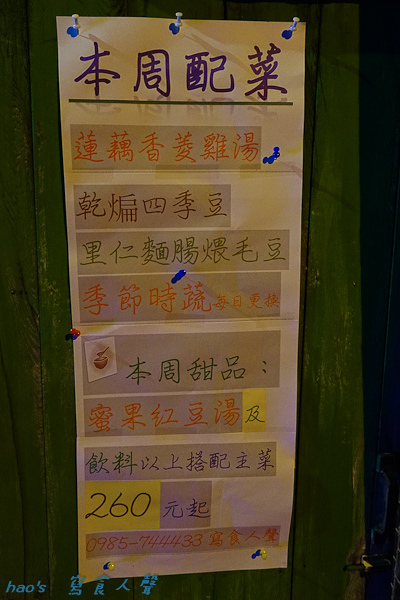 本周配菜
蓮藕香菱雞湯
乾煸四季豆
里仁麵腸煨毛豆
季節時蔬每日更換
本周甜品：
蜜果紅豆湯及
飲料以上搭配主菜
260元起
0985-744433寫食人聲
hao's 寫食人聲